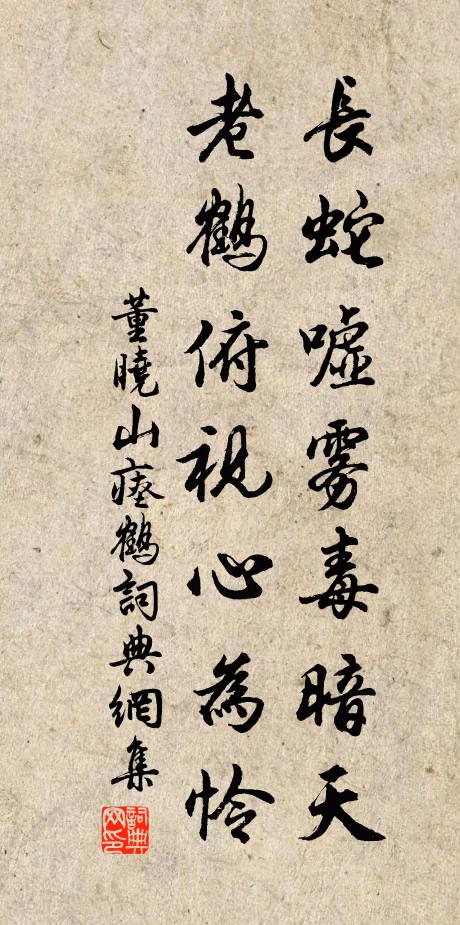 長蛇噓霧毒暗天
老鶴俯視心為怜
董曉山瘞鶴詞典網集
詞典網印